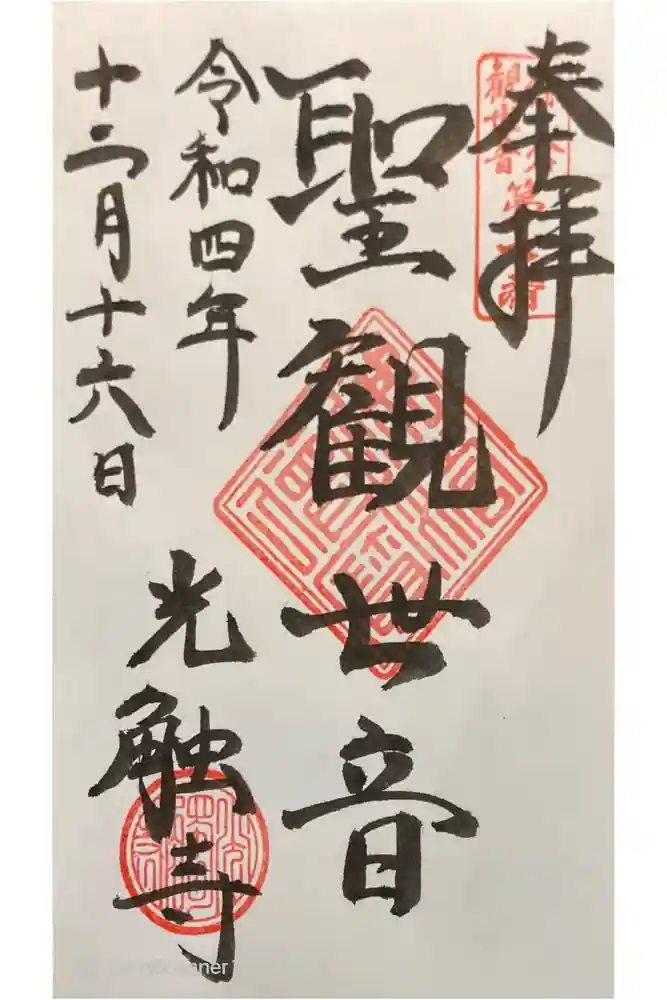 奉拝
聖観世音
令和四年
十二月十六日
光触寺